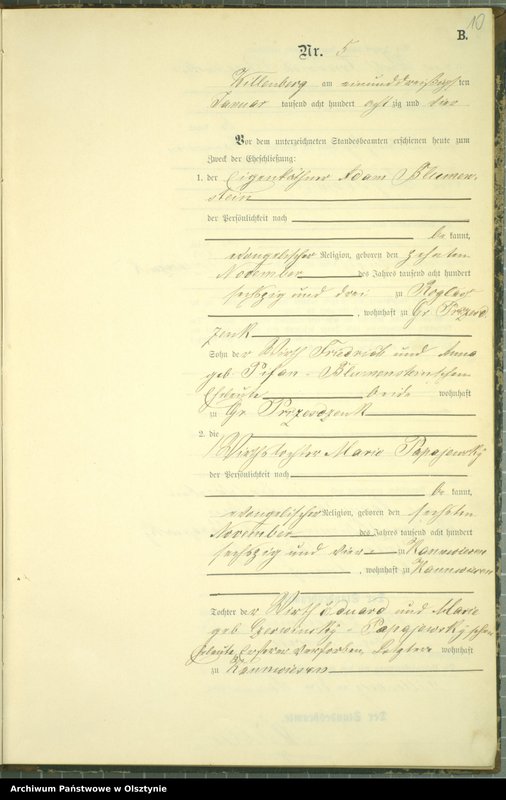 10
B.
Nr. 5
Willenberg am einunddreißigsten
Januar tausend acht hundert achtzig und
Vor dem unterzeichneten Standesbeamten erschienen heute zum
Zweck der Eheschließung:
1. der Eigenkäthner Adam Blumen-
stein
der Persönlichkeit nach
be kannt,
evangelischer Religion, geboren den zehnten
November des Jahres tausend acht hundert
sechszig und drei zu
, wohnhaft zu Gr.
Sohn der Wirth Friedrich und Anna
geb. Blumensteinschen
Eheleute beide wohnhaft
zu Gr.
2. die
Wirthstochter Marie Papajewsky
der Persönlichkeit nach
be kannt,
evangelischer Religion, geboren den sechsten
November des Jahres tausend acht hundert
sechszig und vier zu Kannwiesen
, wohnhaft zu Kannwiesen
Tochter der Wirth Eduard und Marie
geb. Czerwinsky - Papajewsky'schen
Eheleute, Ersterer verstorben, Letztere wohnhaft
zu Kannwiesen
Archiwum Państwowe w Olsztynie